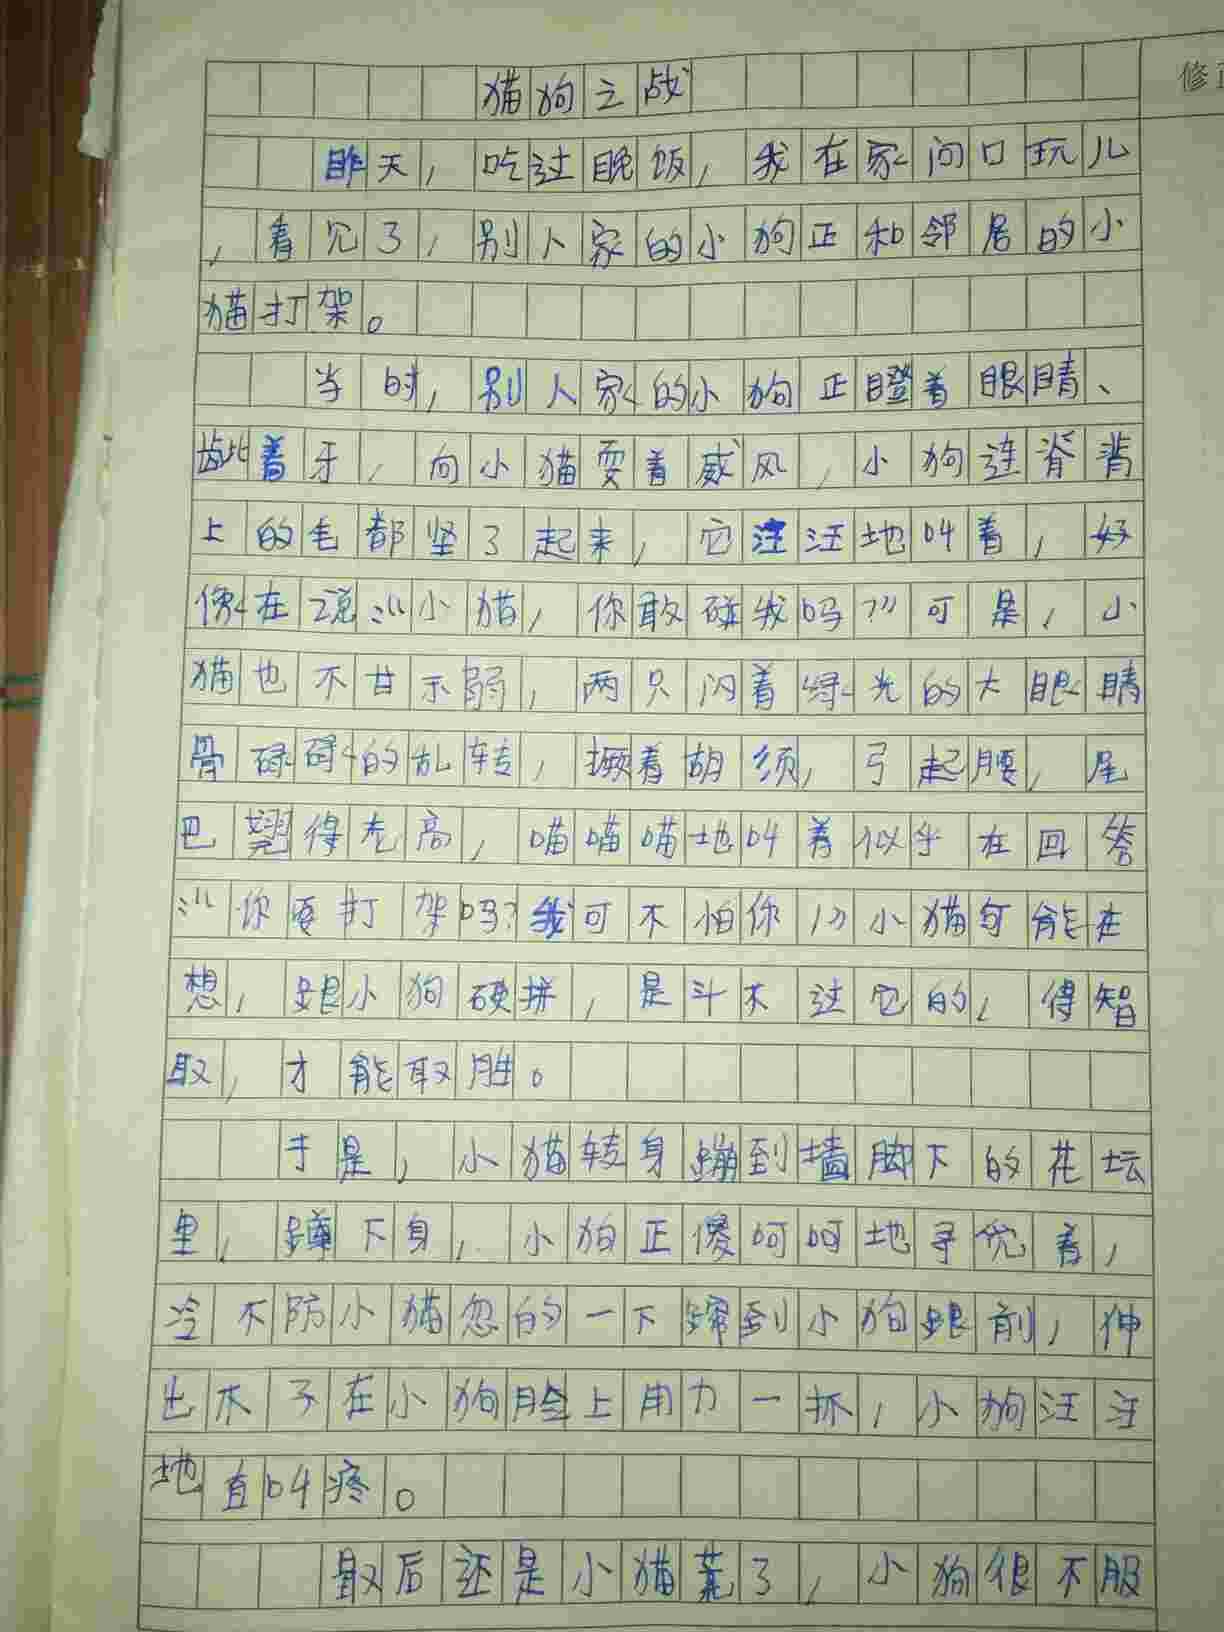 修正
猫狗之战
昨天，吃过晚饭，我在家门口玩儿
，看见了，别人家的小狗正和邻居的小
猫打架。
当时，别人家的小狗正瞪着眼睛、
龇着牙，向小猫耍着威风，小狗连脊背
上的毛都坚了起来，它汪汪地叫着，好
像在说“小猫，你敢碰我吗？”可是，小
猫也不甘示弱，两只闪着绿光的大眼睛
骨碌碌的乱转，撅着胡须，弓起腰，尾
巴翘得老高，喵喵喵地叫着似乎在回答
“你要打架吗？我可不怕你！”小猫可能在
想，跟小狗硬拼，是斗不过它的，得智
取，才能取胜。
于是，小猫转身蹦到墙脚下的花坛
里，蹲下身，小狗正傻呵呵地寻觅着，
冷不防小猫忽的一下蹿到小狗跟前，伸
出爪子在小狗脸上用力一抓，小狗汪汪
地直叫疼。
最后还是小猫赢了，小狗很不服